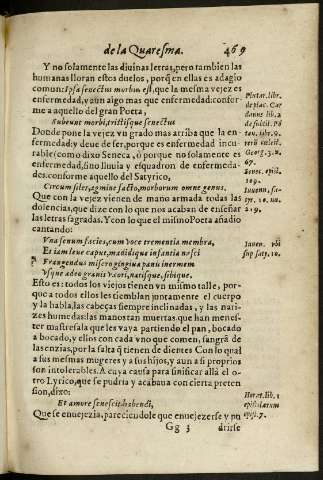 de la Quaresma. 469
Y no solamente las diuinas letras, pero tambien las
humanas lloran estos duelos, porq̃ en ellas es adagio
comun: Ipsa senectus morbus est, que la mesma vejez es
enfermedad, y aun algo mas que enfermedad: confor
me a aquello del gran Poeta,
Subeunt morbi, tristisque senectus
Donde pone la vejez vn grado mas arriba que la en-
fermedad: y deue de ser, porque es enfermedad incu-
rable (como dixo Seneca, ò porque no solamente es
enfermedad, sino lluuia y esquadron de enfermeda-
des. conforme aquello del Satyrico,
Circum silet, agmine facto, morborum omne genus.
Que con la vejez vienen de mano armada todas las
dolencias, que dize con lo que nos acaban de enseñar
las letras sagradas. Y con lo que el mismo Poeta añadio
cantando:
Vna senum facies, cum voce trementia membra,
Et iam leue caput, madidique infantia nasi
Frangendus misero gingiua panis inermi
Vsque adeo grauis vxori, natisque, sibique.
Esto es: todos los viejos tienen vn mismo talle, por-
que a todos ellos les tiemblan juntamente el cuerpo
y la habla, las cabeças siempre inclinadas, y las nari-
zes humedas: las manos tan muertas, que han menes-
ter mastresala que les vaya partiendo el pan, bocado
a bocado, y ellos con cada vno que comen, sangrã de
las enzias, por la falta q̃ tienen de dientes. Con lo qual
a sus mesmas mugeres y a sus hijos, y aun a si proprios
son intolerables. A cuya causa para sinificar allà el o-
tro Lyrico, que se pudria y acabaua con cierta preten
sion, dixo:
Et amore senescit habendi,
Que se enuejezia, pareciendole que enuejezerse y pu
Gg 3 drirse
Plutar. libr.
de plac. Car
danus lib. 2
te rũ cœlest.
Georg. 3. n.
67.
Senec. epist.
109.
Iuuen. sa-
tyr. 10. nu.
219.
Iuuen. vbi
sup saty. 10.
Horat. lib. 1
epistolarum
epist. 7.